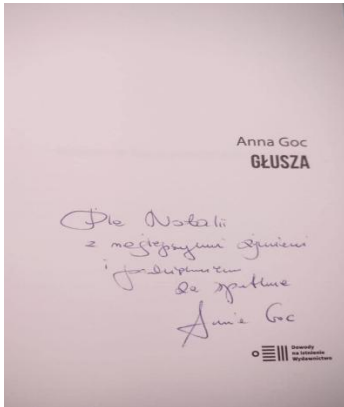 Anna Goc
GŁUSZA
Dla Natalii
z najlepszymi życzeniami
i podziękowaniem
za spotkanie
Anna Goc
Dowody
na Istnienie
Wydawnictwo